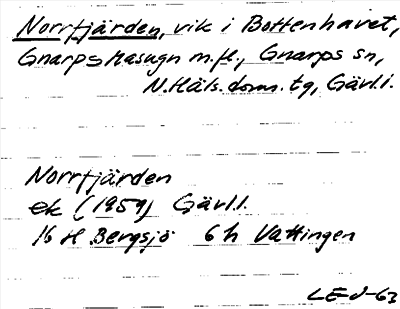 Norrfjärden, vik i Bottenhavet,
Gnarps Masugn m.fl., Gnarps sn,
N.Häls. doms. tg, Gävl.l.
Norrfjärden
ek (1959) Gävl.l.
16 H Bergsjö 6 h Vattingen
LEJ-63